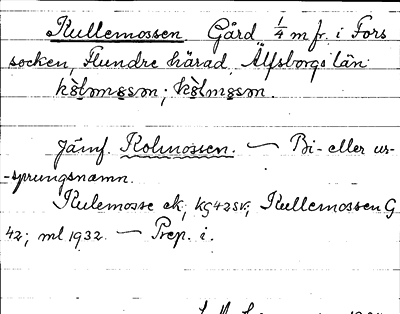 Kullemossen. Gård ¼ m fr. i Fors
socken, Flundre härad, Älfsborgs län
kòləmåsən; kòlməsən.
Jämf. Kolmossen. — Bi- eller ur-
-sprungsnamn.
Kulemosse ek, KG42SV; Kullemossen G
42; ml 1932. — Prep. i.